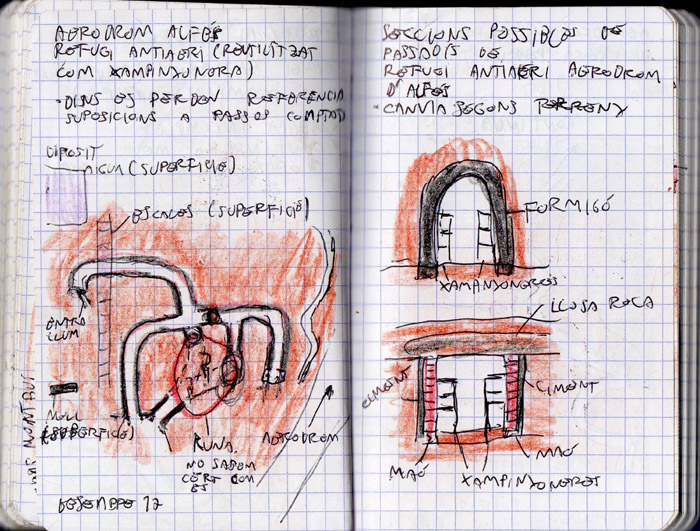 AERODROM ALFÉS
REFUGI ANTIAERI (REUTILITZAT
COM XAMPINYONERA)
· DINS ES PERDEN REFERENCIA
SUPOSICIONS A PASSES COMPTADES
DIPOSIT
AIGUA (SUPERFICIE)
ESCALES (SUPERFICIE)
ENTRA
LLUM
MOLI
(SUPERFICIE)
RUNA.
NO SABEM
CERT COM
ES
AERODROM
DESEMBRE 12
SECCIONS POSSIBLES DE
PASSADÍS DE
REFUGI ANTIAERI AERODROM
D'ALFÉS
· CANVIA SEGONS TERRENY
FORMIGÓ
XAMPINYONERES
LLOSA ROCA
CIMENT
CIMENT
MAÓ
MAÓ
XAMPINYONERES